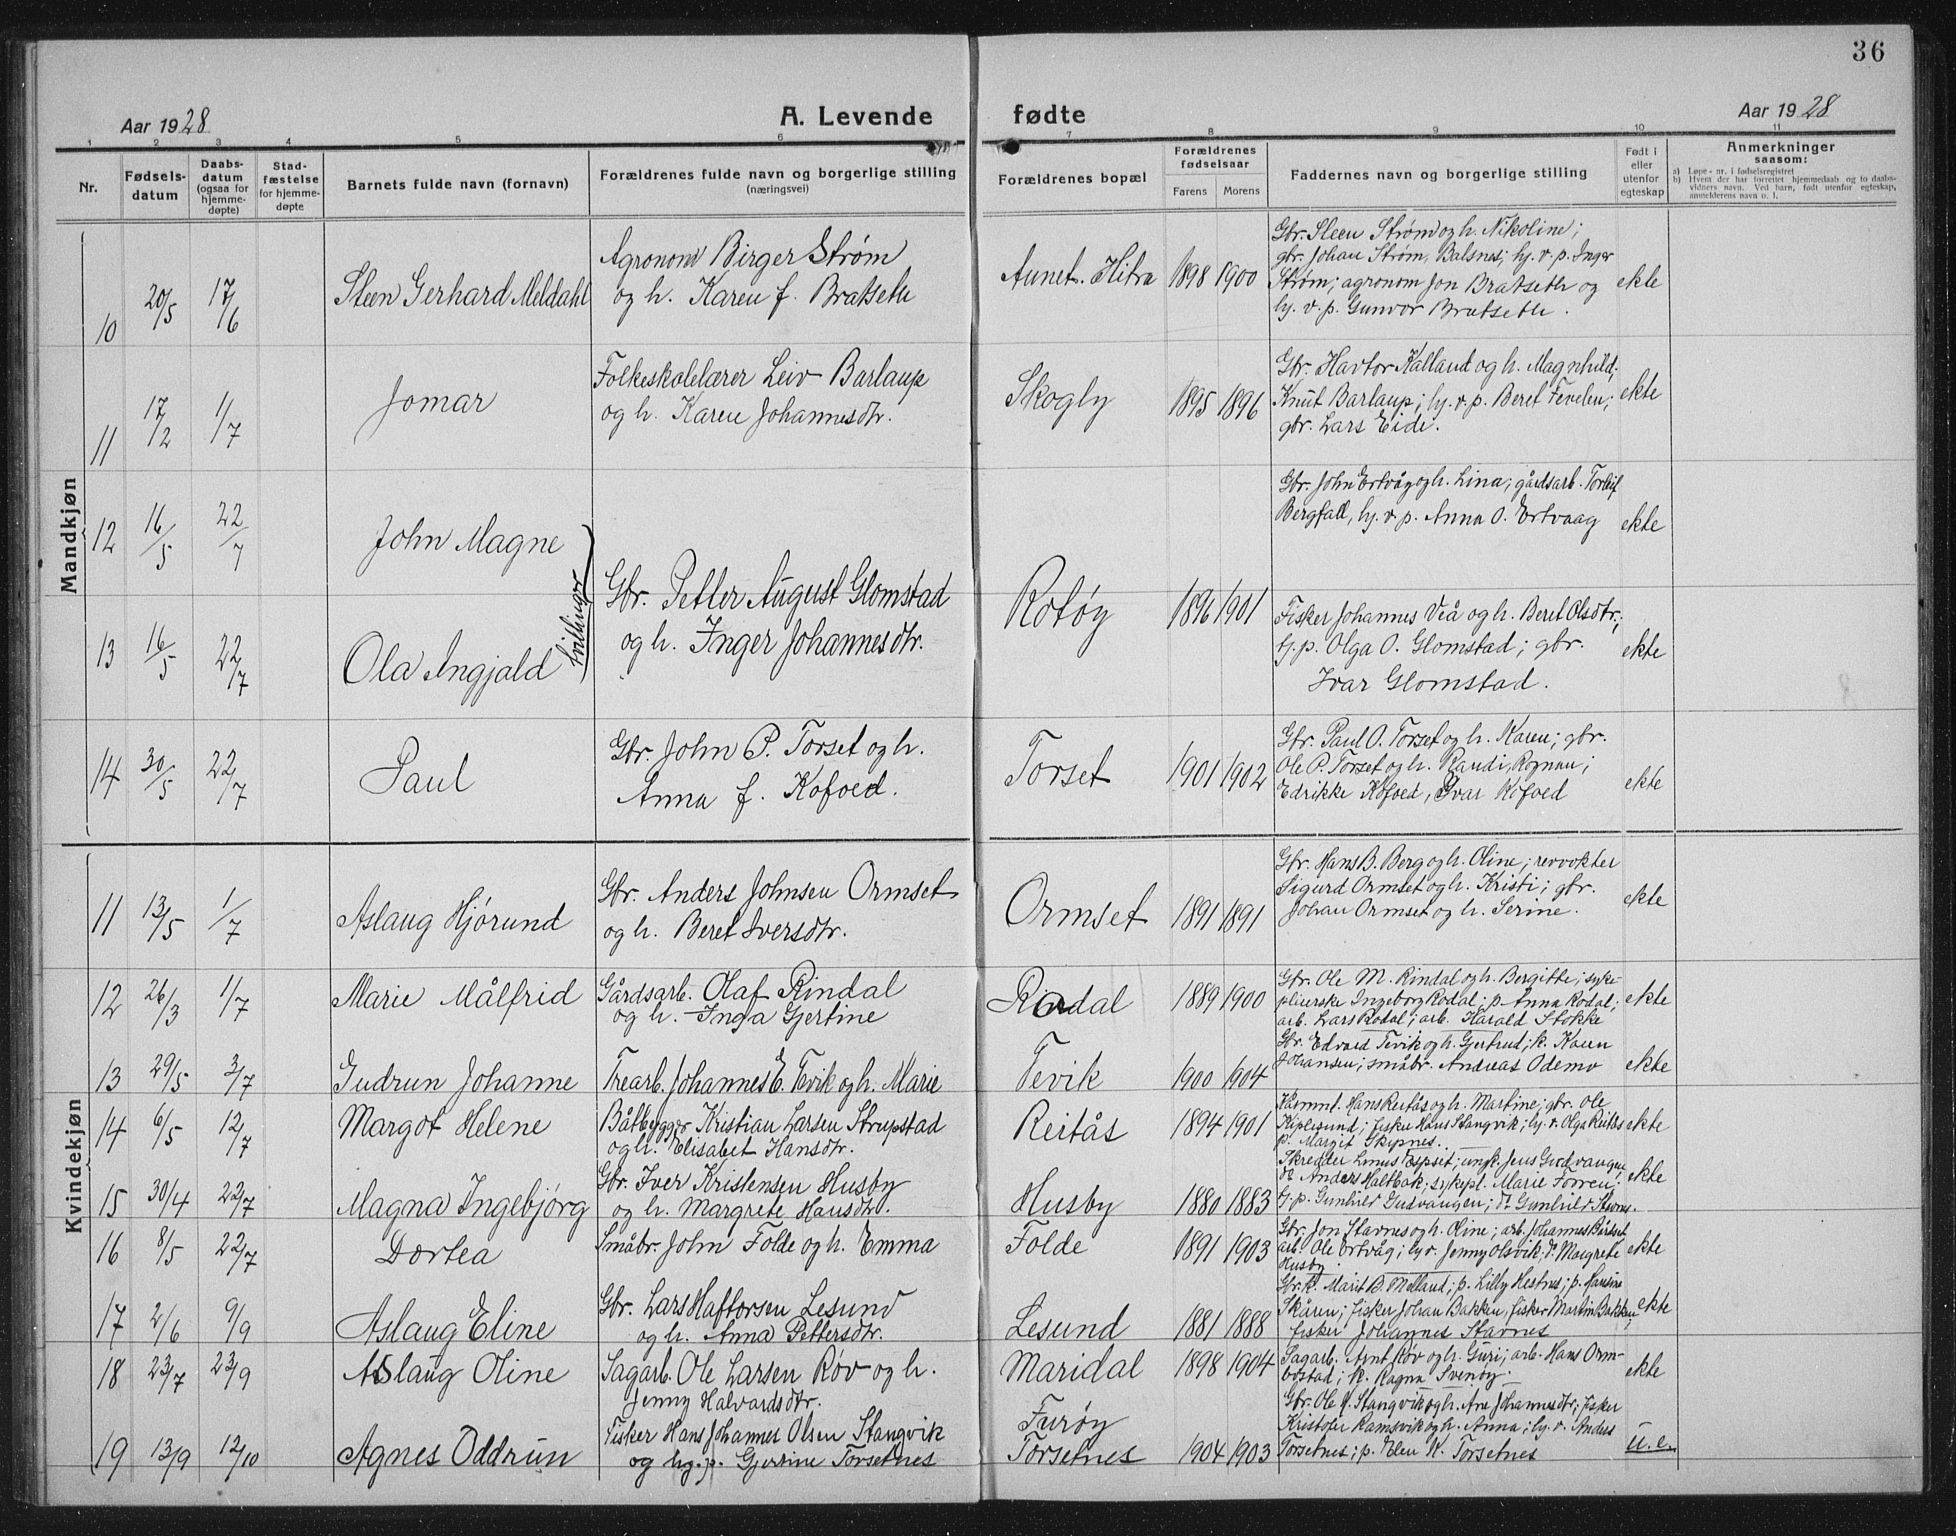 36
Aar 1928
A. Levende
fødte
Aar 1928
1 2 3 4 5 6 7 8 9 10 11
Nr.
Fødsels-
datum
Daabs-
datum
(ogsaa for
hjemme-
døpte)
Stad-
fæstelse
for hjemme-
døpte
Barnets fulde navn (fornavn)
Forældrenes fulde navn og borgerlige stilling
(næringsvei)
Forældrenes bopæl
Forældrenes
fødselsaar
Farens Morens
Faddernes navn og borgerlige stilling
Født i
eller
utenfor
egteskap
Anmerkninger
saasom:
a) Løpe-nr. i fødselsregistret
b) Hvem der har forrettet hjemmedaab og to daabs-
vidners navn. Ved barn, født utenfor egteskap,
anmelderens navn o. l.
Mandkjøn
10 20/5 17/6 Steen Gerhard Meldahl
Agronom Birger Strøm
og h. Karen f. Bratseth
Aunet. Hitra 1898 1900
Gbr. Steen Strøm og h. Nikoline;
gbr. Johan Strøm, Balsnes; hj. v. p. Inger
Strøm; agronom Jon Bratseth og
hj. v. p. Gunvor Bratseth.
ekte
11 17/2 1/7 Jomar
Folkeskolelærer Leiv Barlaup
og h. Karen Johannesdtr.
Skogly 1895 1896
Gbr. Havtor Kalland og h. Magnhild;
Knut Barlaup; hj. v. p. Beret Fevelen;
gbr. Lars Eide.
ekte
12 16/5 22/7 John Magne
tvillinger
Gbr. John Ertvåg og h. Lina; gårdsarb. Torleif
Bergfall, hj. v. p. Anna O. Ertvaag
ekte
Gbr. Petter August Glomstad
og h. Inger Johannesdtr.
Rotøy 1896 1901
13 16/5 22/7 Ola Ingjald
Fisker Johannes Veå og h. Beret Olsdtr.;
hj. p. Olga O. Glomstad; gbr.
Ivar Glomstad.
ekte
14 30/5 22/7 Paul
Gbr. John P. Torset og h.
Anna f. Kofoed.
Torset 1901 1902
Gbr. Paul O. Torset og h. Karen; gbr.
Ole P. Torset og h. Randi, Rognan;
Edrikke Kofoed, Ivar Kofoed
ekte
Kvindekjøn
11 13/5 1/7 Aslaug Hjørund
Gbr. Anders Johnsen Ormset
og h. Beret Iversdtr.
Ormset 1891 1891
Gbr. Hans B. Berg og h. Oline; revvokter
Sigurd Ormset og h. Kristi; gbr.
Johan Ormset og h. Serine.
ekte
12 26/3 1/7 Marie Målfrid
Gårdsarb. Olaf Rindal
og h. Inga Gjertine
Rindal 1889 1900
Gbr. Ole M. Rindal og h. Bergitte; syke-
pleierske Ingeborg Rodal; p. Anna Rodal;
arb. Lars Rodal; arb. Harald Stokke
ekte
13 29/5 3/7 Gudrun Johanne
Trearb. Johannes E. Tevik og h. Marie
Tevik 1900 1904
Gbr. Edvard Tevik og h. Gertrud; k. Karen
Johansen; småbr. Andreas Odemo
ekte
14 6/5 12/7 Margot Helene
Båtbygger Kristian Larsen Strupstad
og h. Elisabet Hansdtr.
Reitås 1894 1901
Hans Reitås og h. Martine; gbr. Ole
Kiplesund; fisker Hans Stangvik; hj. v. Olga Reitås
p. Margit Skypnes.
ekte
15 30/4 22/7 Magna Ingebjørg
Gbr. Iver Kristensen Husby
og h. Margrete Hansdtr.
Husby 1880 1883
Skredder Linus Espset; ungk. Jens Gudvangen,
do Anders Haltbak; sykepl. Marie Forren;
hj. p. Gunhild Gudvangen; do Gunhild Stavnes.
ekte
16 8/5 22/7 Dortea
Småbr. John Folde og h. Emma
Folde 1891 1903
Gbr. Jon Stavnes og h. Oline; arb. Johannes Båtset
arb. Ole Ertvåg; hj. v. Jenny Olsvik; do Margrete
Husby.
ekte
17 2/6 9/9 Aslaug Eline
Gbr. Lars Haftorsen Lesund
og h. Anna Pettersdtr.
Lesund 1881 1888
Gbr. k. Marit B. Melland; p. Lilly Hestnes; p. Hansine
Skåren; fisker Johan Bakken, fisker Martin Bakken;
fisker Johannes Stavnes
ekte
18 23/7 23/9 Aslaug Oline
Sagarb. Ole Larsen Røv og h.
Jenny Halvardsdtr.
Maridal 1898 1904
Sagarb. Arnt Røv og h. Guri; arb. Hans Orm-
bostad; k. Ragna Svenøy.
ekte
19 13/9 12/10 Agnes Oddrun
Fisker Hans Johannes Olsen Stangvik
og hj. p. Gjertine Torsetnes
Furøy
Torsetnes 1904 1903
Gbr. Ole J. Stangvik og h. Ane Johannesdtr; fisker
Kristofer Ramsvik og h. Anna; hj. v. Anders
Torsetnes; p. Elen K. Torsetnes
u. e.